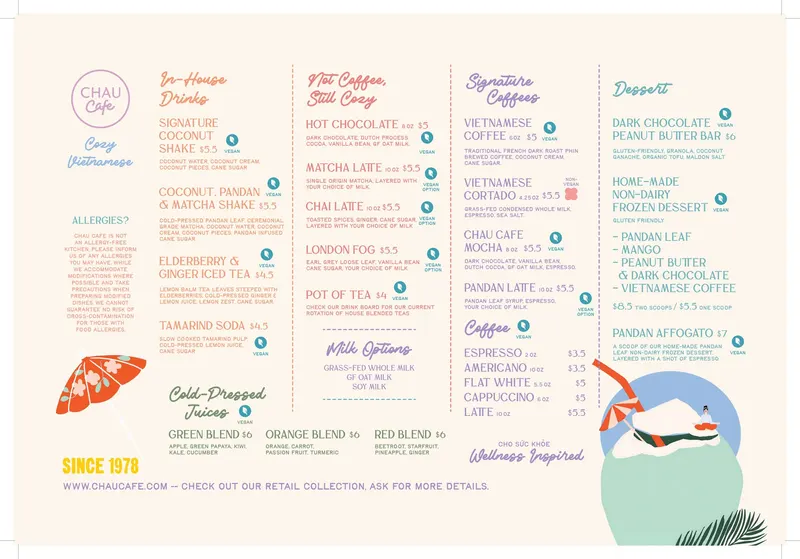 CHAU
Cafe
Cozy
Vietnamese
ALLERGIES?
CHAU CAFE IS NOT
AN ALLERGY-FREE
KITCHEN. PLEASE INFORM
US OF ANY ALLERGIES
YOU MAY HAVE. WHILE
WE ACCOMMODATE
MODIFICATIONS WHERE
POSSIBLE AND TAKE
PRECAUTIONS WHEN
PREPARING MODIFIED
DISHES WE CANNOT
GUARANTEE NO RISK OF
CROSS-CONTAMINATION
FOR THOSE WITH
FOOD ALLERGIES.
In-House
Drinks
SIGNATURE
COCONUT
SHAKE $5.5
VEGAN
COCONUT WATER, COCONUT CREAM,
COCONUT PIECES, CANE SUGAR
COCONUT, PANDAN
& MATCHA SHAKE $5.5
VEGAN
COLD-PRESSED PANDAN LEAF, CEREMONIAL
GRADE MATCHA, COCONUT WATER, COCONUT
CREAM, COCONUT PIECES, PANDAN INFUSED
CANE SUGAR
ELDERBERRY &
GINGER ICED TEA $4.5
VEGAN
LEMON BALM TEA LEAVES STEEPED WITH
ELDERBERRIES, COLD-PRESSED GINGER &
LEMON JUICE, LEMON ZEST, CANE SUGAR
TAMARIND SODA $4.5
SLOW COOKED TAMARIND PULP,
COLD-PRESSED LEMON JUICE,
CANE SUGAR
VEGAN
Not Coffee,
Still Cozy
HOT CHOCOLATE 8 OZ $5
DARK CHOCOLATE, DUTCH PROCESS
COCOA, VANILLA BEAN, GF OAT MILK
VEGAN
MATCHA LATTE 10 OZ $5.5
SINGLE ORIGIN MATCHA, LAYERED WITH
YOUR CHOICE OF MILK
VEGAN
OPTION
CHAI LATTE 10 OZ $5.5
TOASTED SPICES, GINGER, CANE SUGAR,
LAYERED WITH YOUR CHOICE OF MILK
VEGAN
OPTION
LONDON FOG $5.5
EARL GREY LOOSE LEAF, VANILLA BEAN
CANE SUGAR, YOUR CHOICE OF MILK
VEGAN
OPTION
POT OF TEA $4
VEGAN
CHECK OUR DRINK BOARD FOR OUR CURRENT
ROTATION OF HOUSE BLENDED TEAS
Milk Options
GRASS-FED WHOLE MILK
GF OAT MILK
SOY MILK
Signature
Coffees
VIETNAMESE
COFFEE 5 OZ $5
VEGAN
TRADITIONAL FRENCH DARK ROAST PHIN
BREWED COFFEE, COCONUT CREAM,
CANE SUGAR
VIETNAMESE
CORTADO 4.25 OZ $5.5
NON-
VEGAN
GRASS-FED CONDENSED WHOLE MILK,
ESPRESSO, SEA SALT
CHAU CAFE
MOCHA 8 OZ $5.5
VEGAN
DARK CHOCOLATE, VANILLA BEAN,
DUTCH COCOA, GF OAT MILK, ESPRESSO,
PANDAN LATTE 10 OZ $5.5
PANDAN LEAF SYRUP, ESPRESSO,
YOUR CHOICE OF MILK
VEGAN
OPTION
Coffee
VEGAN
ESPRESSO 2 OZ $3.5
AMERICANO 10 OZ $3.5
FLAT WHITE 5.5 OZ $5
CAPPUCCINO 6 OZ $5
LATTE 10 OZ $5.5
CHO SỨC KHỎE
Wellness Inspired
Dessert
DARK CHOCOLATE
PEANUT BUTTER BAR $6
VEGAN
GLUTEN-FRIENDLY, GRANOLA, COCONUT
GANACHE, ORGANIC TOFU, MALDON SALT
HOME-MADE
NON-DAIRY
FROZEN DESSERT
VEGAN
GLUTEN FRIENDLY
– PANDAN LEAF
– MANGO
– PEANUT BUTTER
& DARK CHOCOLATE
– VIETNAMESE COFFEE
$8.5 TWO SCOOPS / $5.5 ONE SCOOP
PANDAN AFFOGATO $7
A SCOOP OF OUR HOME-MADE PANDAN
LEAF NON-DAIRY FROZEN DESSERT,
LAYERED WITH A SHOT OF ESPRESSO
VEGAN
Cold-Pressed
Juices
VEGAN
GREEN BLEND $6
APPLE, GREEN PAPAYA, KIWI,
KALE, CUCUMBER
ORANGE BLEND $6
ORANGE, CARROT,
PASSION FRUIT, TURMERIC
RED BLEND $6
BEETROOT, STARFRUIT,
PINEAPPLE, GINGER
SINCE 1978
WWW.CHAUCAFE.COM — CHECK OUT OUR RETAIL COLLECTION, ASK FOR MORE DETAILS.